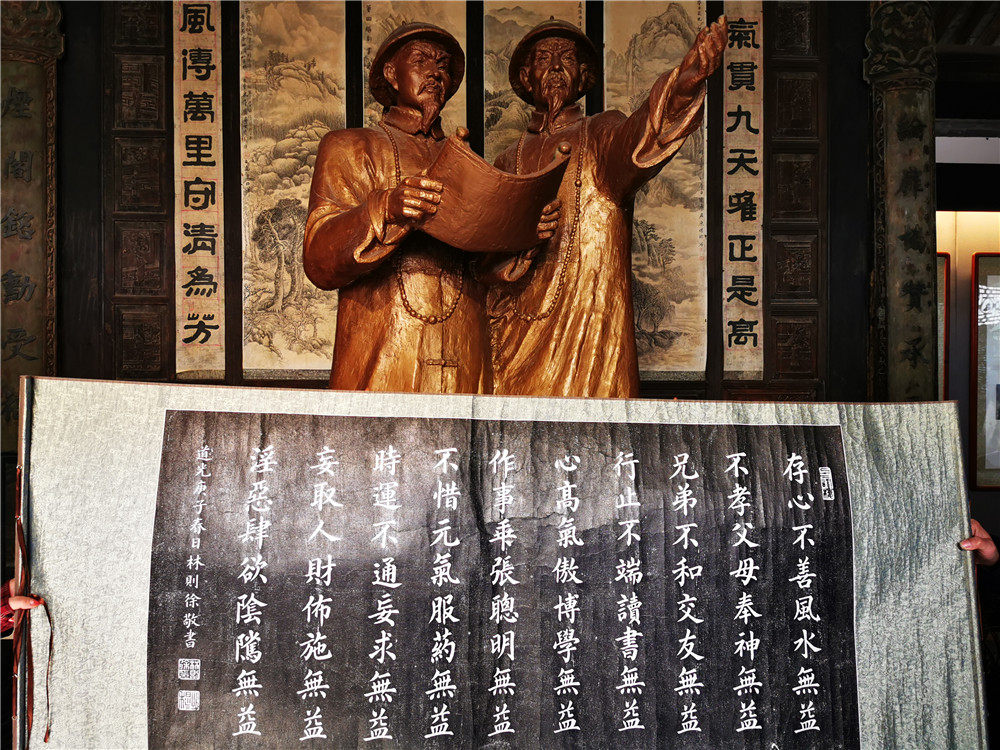 氣貫九天確正是高
風傳萬里守清為芳
存心不善風水無益
不孝父母奉神無益
兄弟不和交友無益
行止不端讀書無益
心高氣傲博學無益
作事乖張聰明無益
不惜元氣服药無益
時運不通妄求無益
妄取人財佈施無益
淫惡肆欲陰隲無益
道光庚子春日林則徐敬書